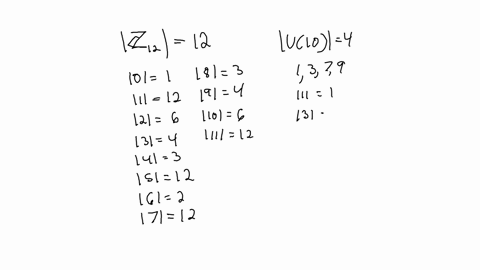 |ℤ₁₂| = 12
|0| = 1
|1| = 12
|2| = 6
|3| = 4
|4| = 3
|5| = 12
|6| = 2
|7| = 12
|8| = 3
|9| = 4
|10| = 6
|11| = 12
|U(10)| = 4
1, 3, 7, 9
|1| = 1
|3| -